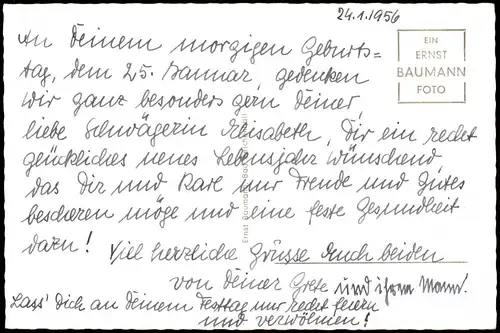 24.1.1956
An deinem morzigen Geburts=
tag, dem 25. Januar, gedenken
wir ganz besonders gern deiner,
liebe Schwägerin Elisabeth, Dir ein recht
glückliches neues Lebensjahr wünschend,
das Dir und Karl nur Freude und Gutes
bescheren möge und eine feste Gesundheit
dazu! Viel herzliche Grüsse Euch beiden
von deiner Grete und ihrem Mann.
Lass' Dich an deinem Festtag nur recht feiern
und verwöhnen!
EIN
ERNST
BAUMANN
FOTO
Ernst Baumann Bad Reichenhall